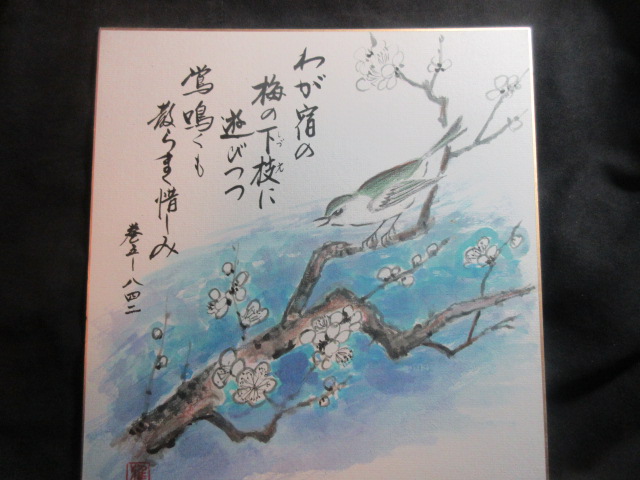 わが宿の
梅の下枝に
しづえ
遊びつつ
鶯鳴くも
散らまく惜しみ
巻五ー八四二